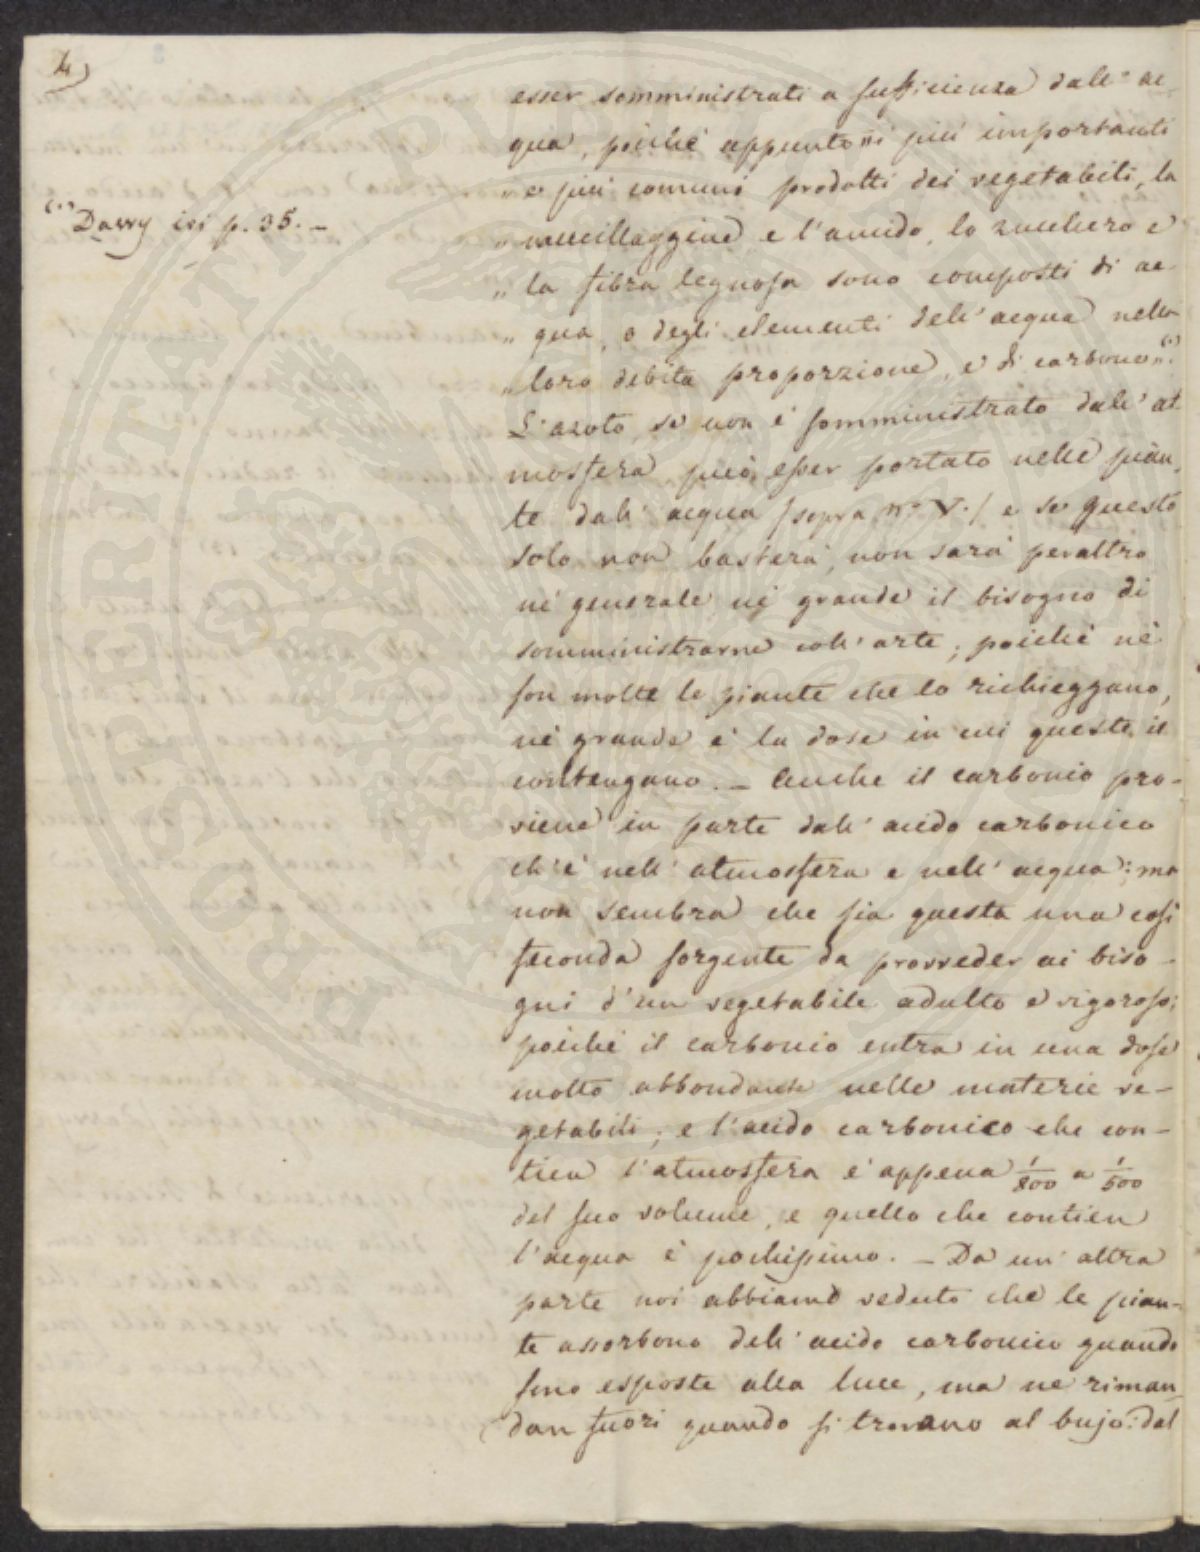 4)
esser somministrati a sufficienza dall' ac-
qua, poichè appunto „i più importanti
„e più comuni prodotti dei vegetabili, la
(1) Davvy ivi p. 35. –
„mucillaggine e l'amido, lo zucchero e
„la fibra legnosa sono composti di ac-
„qua, o degli elementi dell' acqua nella
„loro debita proporzione, e di carbonio„(1).
L'azoto, se non è somministrato dall' at-
mosfera, può esser portato nelle pian-
te dall' acqua /sopra n.° V./ e se questo
solo non basterà, non sarà peraltro
nè generale nè grande il bisogno di
somministrarne coll' arte; poichè nè
son molte le piante che lo richieggano,
nè grande è la dose in cui queste il
contengano. – Anche il carbonio pro-
viene in parte dall' acido carbonico
ch' è nell' atmosfera e nell' acqua; ma
non sembra che sia questa una così
feconda sorgente da provveder ai biso-
gni d'un vegetabile adulto e vigoroso;
poichè il carbonio entra in una dose
molto abbondante nelle materie ve-
getabili; e l'acido carbonico che con-
tien l'atmosfera è appena 1/800 a 1/500
del suo volume, e quello che contien
l'acqua è pochissimo. – Da un' altra
parte noi abbiamo veduto che le pian-
te assorbono dell' acido carbonico quando
sono esposte alla luce, ma ne riman-
dan fuori quando si trovano al bujo: dal
PROSPERITATI PUBLICAE